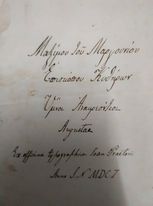 Μαξίμου τοῦ Μαργουνίου
Ἐπισκόπου Κυθήρων
Ὕμνοι Ἀνακρεόντειοι
Augustae
Ex officina typographica Ioan Praetorii
Anno S. N. MDCI